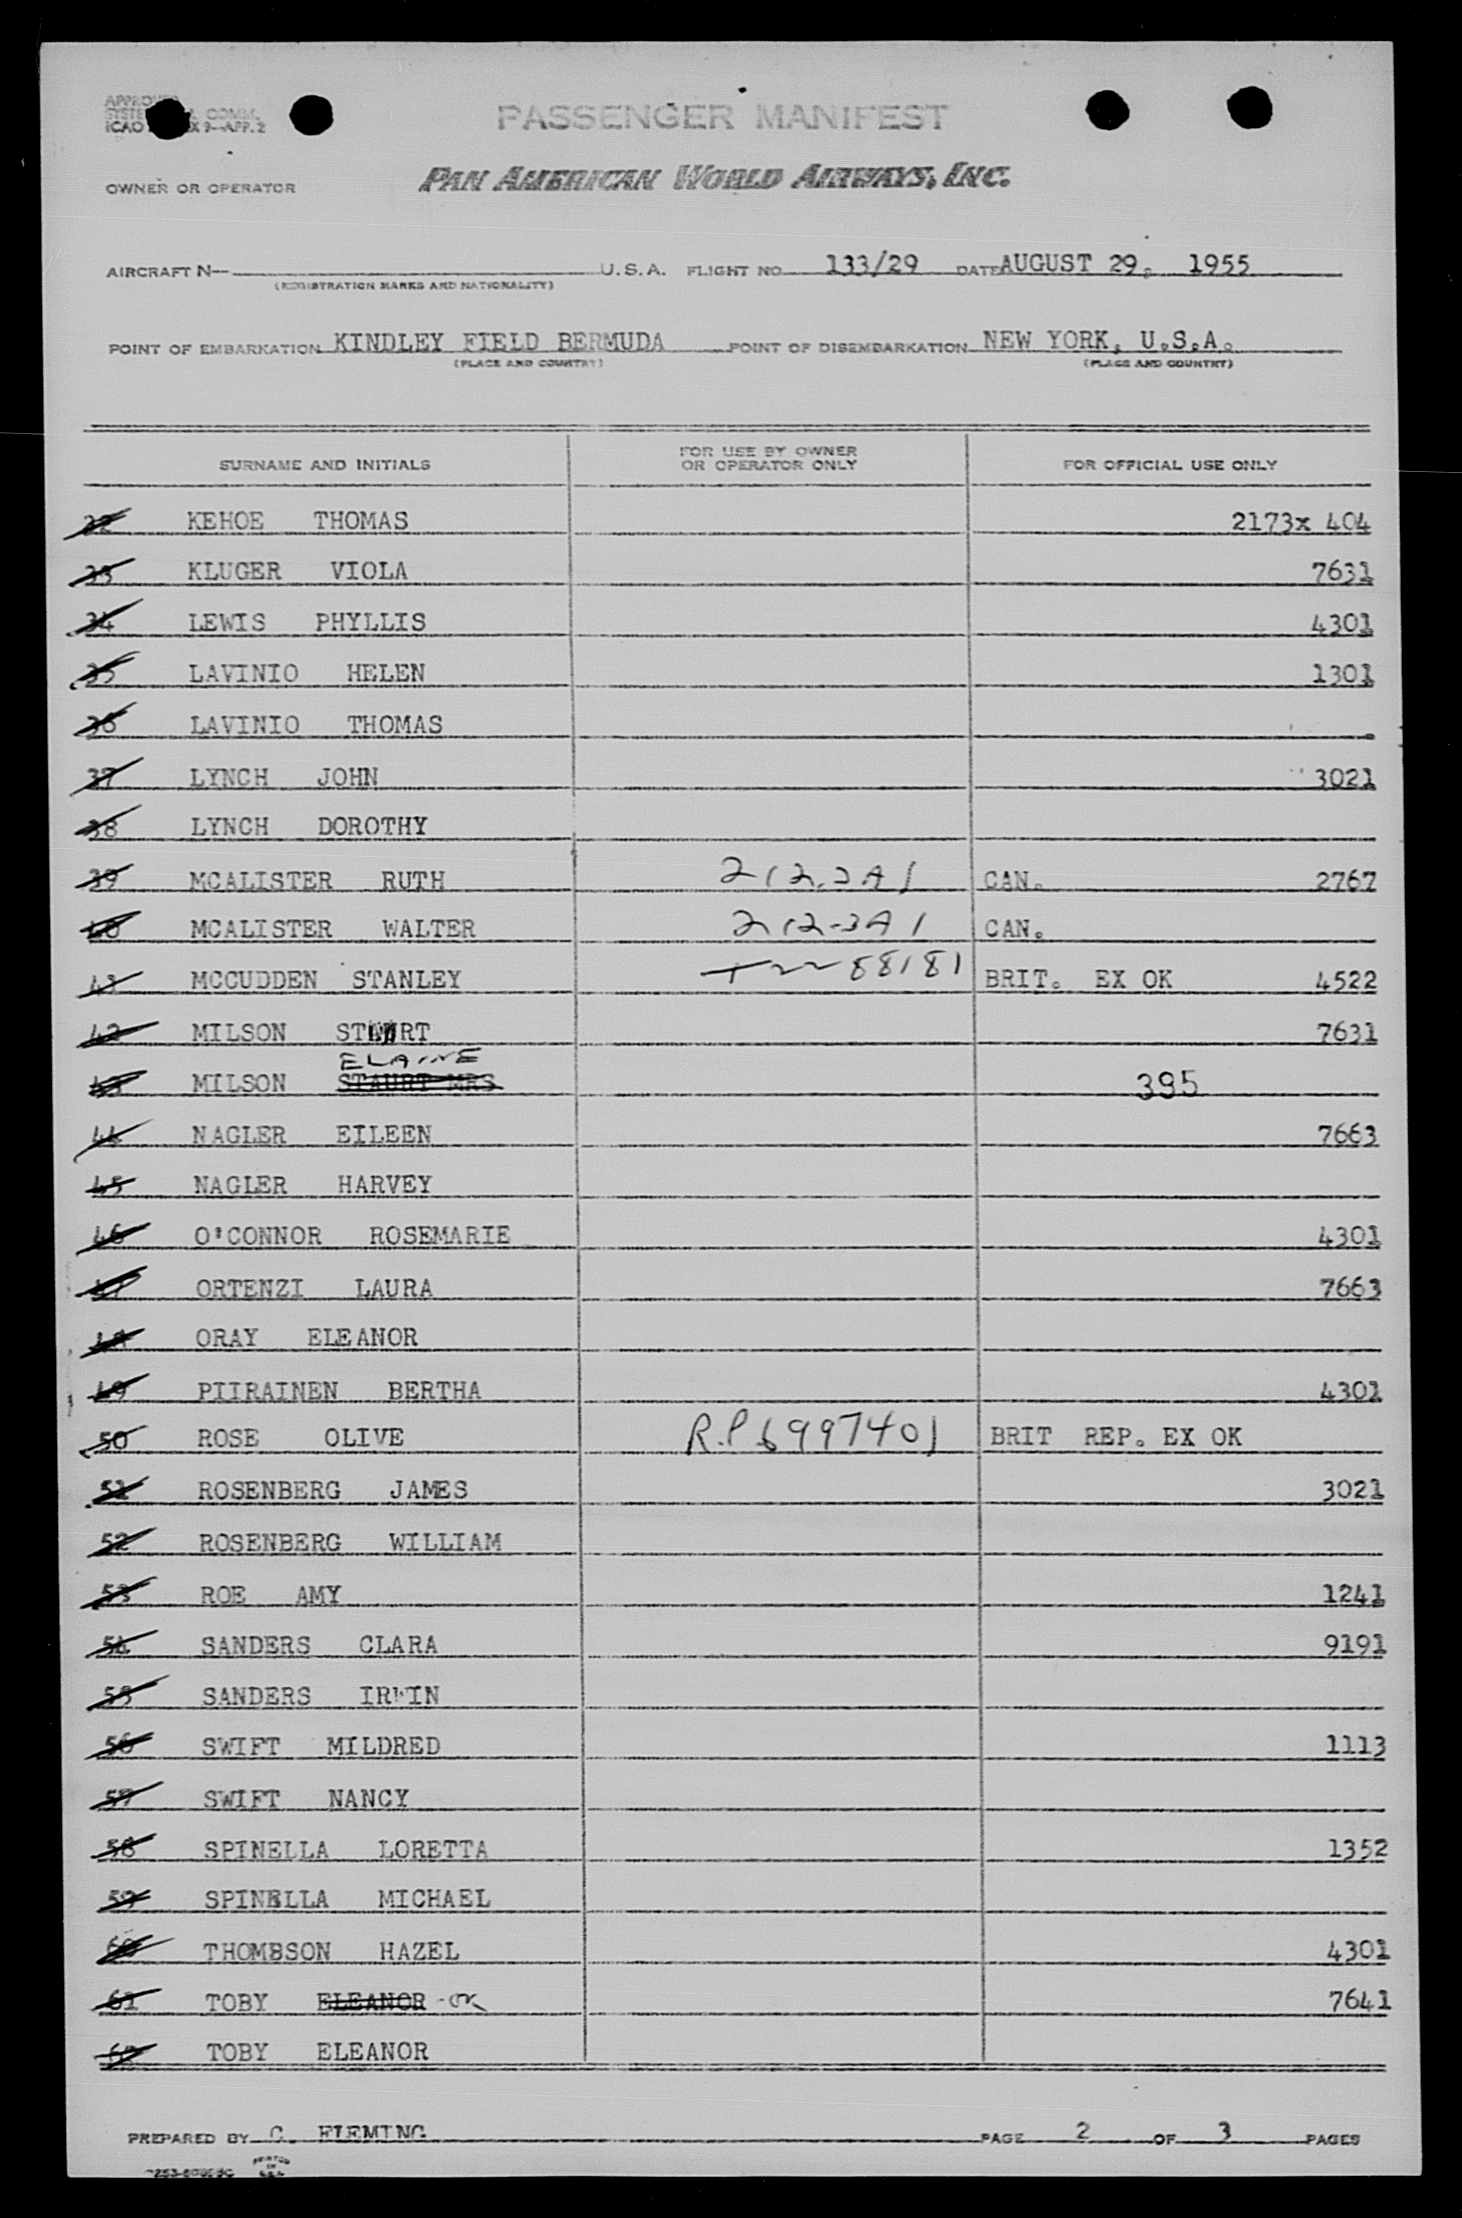 PASSENGER MANIFEST
ICAO 9-APP. 2
OWNER OR OPERATOR PAN AMERICAN WORLD AIRWAYS, INC.
AIRCRAFT N- U.S.A. FLIGHT NO 133/29 DATE AUGUST 29, 1955
(REGISTRATION MARKS AND NATIONALITY)
POINT OF EMBARKATION KINDLEY FIELD BERMUDA POINT OF DISEMBARKATION NEW YORK, U.S.A.
(PLACE AND COUNTRY) (PLACE AND COUNTRY)
SURNAME AND INITIALS FOR USE BY OWNER OR OPERATOR ONLY FOR OFFICIAL USE ONLY
32 KEHOE THOMAS 2173x 404
33 KLUGER VIOLA 7631
34 LEWIS PHYLLIS 4301
35 LAVINIO HELEN 1301
36 LAVINIO THOMAS
37 LYNCH JOHN 3021
38 LYNCH DOROTHY
39 MCALISTER RUTH 212.3A1 CAN. 2767
40 MCALISTER WALTER 212-3A1 CAN.
41 MCCUDDEN STANLEY 88181 BRIT. EX OK 4522
42 MILSON 7631
ELAINE
43 MILSON STAURT MRS 395
44 NAGLER EILEEN 7663
45 NAGLER HARVEY
46 O'CONNOR ROSEMARIE 4301
47 ORTENZI LAURA 7663
48 ORAY ELEANOR
49 PIIRAINEN BERTHA 4301
50 ROSE OLIVE R.P 6997401 BRIT REP. EX OK
51 ROSENBERG JAMES 3021
52 ROSENBERG WILLIAM
53 ROE AMY 1241
54 SANDERS CLARA 9191
55 SANDERS IRWIN
56 SWIFT MILDRED 1113
57 SWIFT NANCY
58 SPINELLA LORETTA 1352
59 SPINELLA MICHAEL
60 THOMBSON HAZEL 4301
61 TOBY ELEANOR -OK 7641
62 TOBY ELEANOR
PREPARED BY C. FLEMING PAGE 2 OF 3 PAGES
PRINTED IN U.S.A.